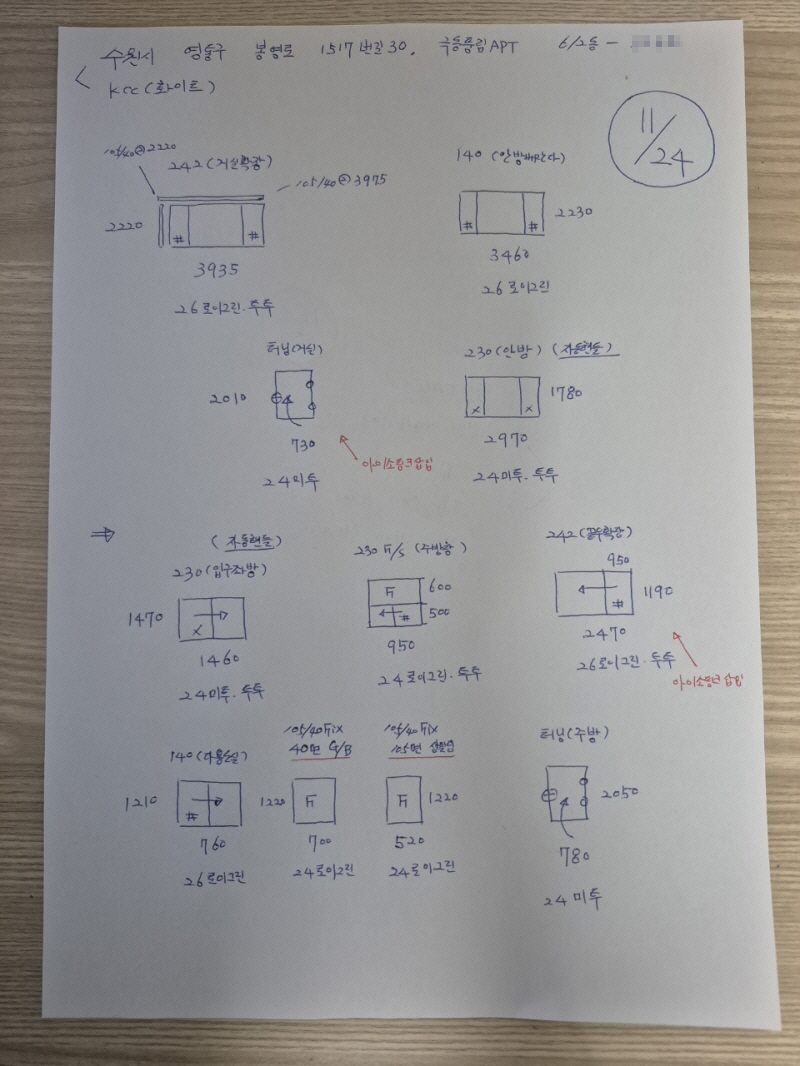 수원시 영통구 봉영로 1517번길 30, 극동풍림APT 612동 -
KCC(화이트)
11/24
105/40@2220
242(거실확장)
105/40@3975
2220
#
#
3935
26로이그린·투투
140(안방베란다)
#
#
2230
3460
26로이그린
터닝(거실)
2010
730
24미투
아이소핑크삽입
230(안방) (자동핸들)
X
X
1780
2970
24미투·투투
⇒
(자동핸들)
230(입구좌방)
1470
X
1460
24미투·투투
230 F/S (주방창)
F
600
#
500
950
24로이그린·투투
950
#
1190
2470
26로이그린·투투
140(다용도실)
1210
#
760
26로이그린
105/40 Fix
40면 G/B
1220
F
700
24로이그린
105/40 Fix
F
1220
520
24로이그린
터닝(주방)
2050
780
24미투